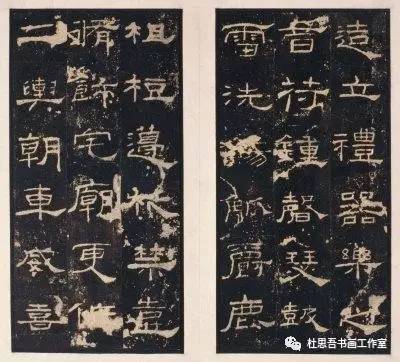 造立禮器樂之
音苻鍾磬瑟鼓
雷洗觴觚爵鹿
柤梪籩柉禁壺
脩飾宅廟更作
二輿朝車威熹
杜思吾书画工作室